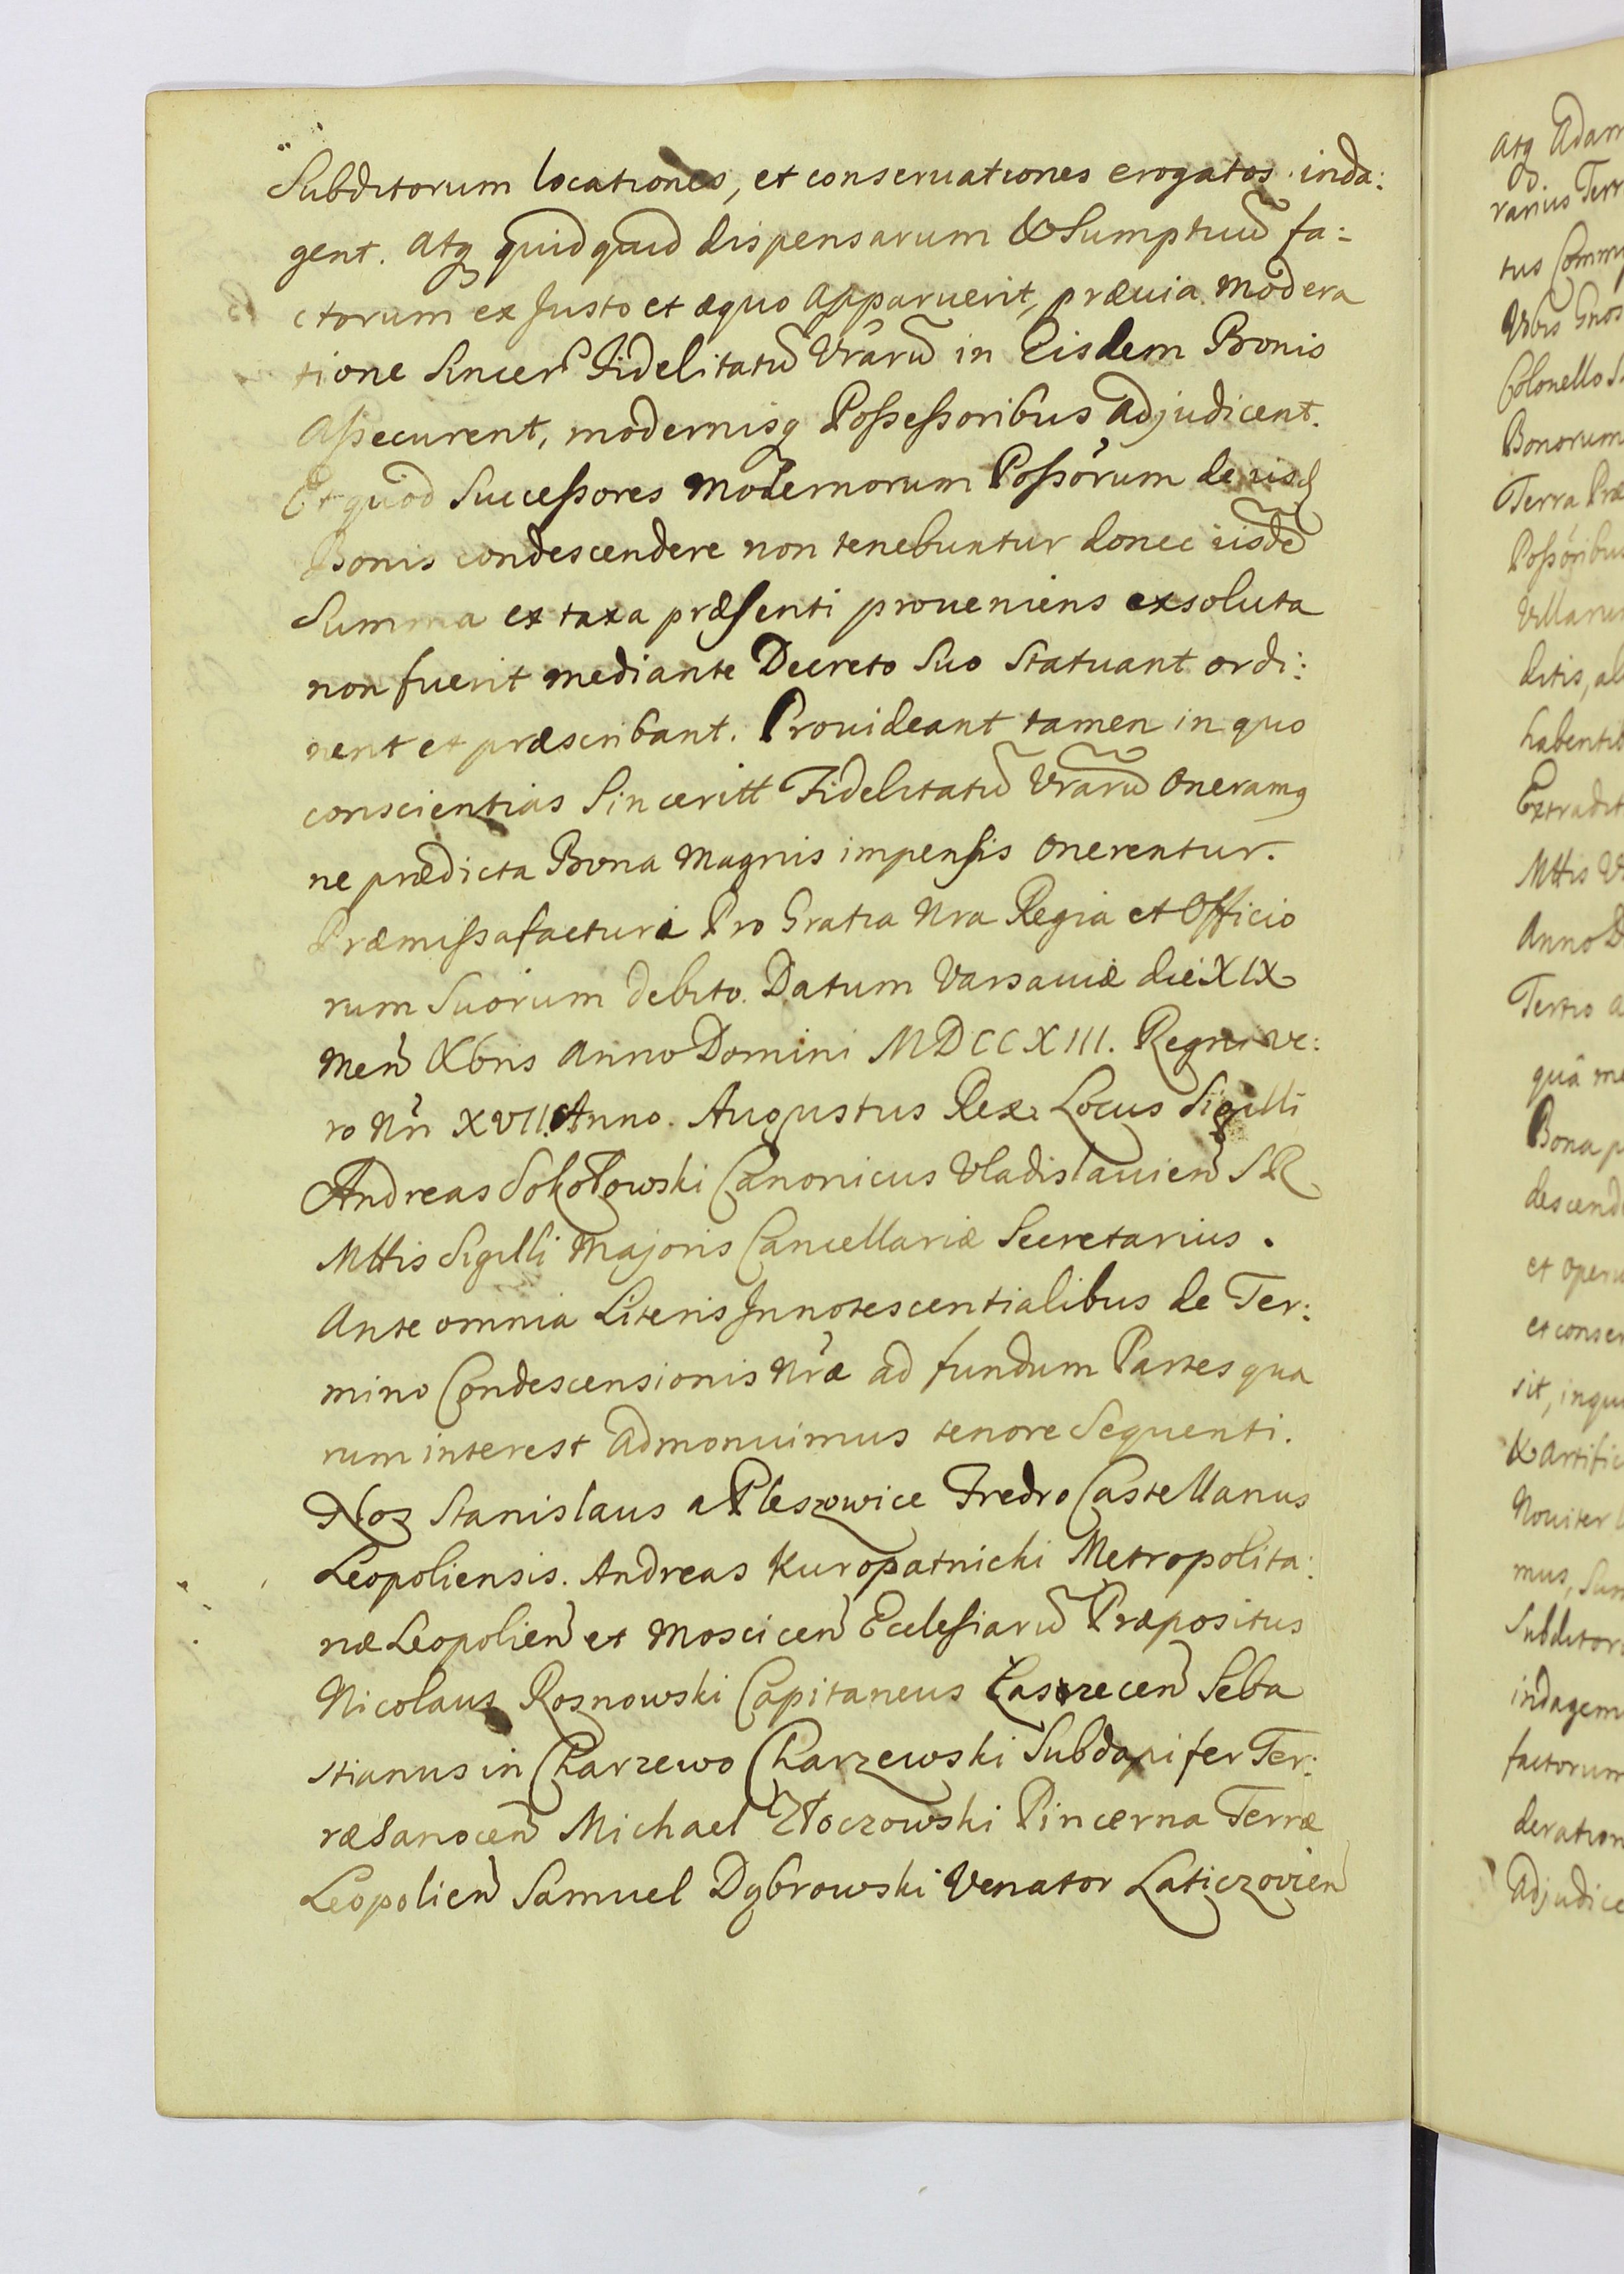 Subditorum locationes, et conseruationes erogatos inda:
gent. Atq quidquid dispensarum & Sumptuũ fa:
ctorum ex Justo et æquo apparuerit, præuia modera
tione Sincer Fidelitatũ Vrarũ in Eisdem Bonis
Assecurent, modernisq Possessoribus adjudicent.
Et quod Successores modernorum Possorum de iisd
Bonis condescendere non tenebuntur donec iisdẽ
Summa ex taxa præsenti proueniens exsoluta
non fuerit mediante Decreto Suo Statuant ordi:
nent et præscribant. Prouideant tamen in quo
conscientias Sinceritt Fidelitatũ Vrarũ Oneramq
ne prædicta Bona Magnis impensis Onerentur.
Præmissa facturi Pro Gratia Nra Regia et Officio
rum Suorum debito. Datum Varsauiæ die XIX
Men Xbris Anno Domini MDCCXIII. Regni ve:
ro Nri XVII. Anno. Augustus Rex. Locus Sigilli
Andreas Sokołowski Canonicus Vladislauien SR
Mttis Sigilli Majoris Cancellariæ Secretarius.
Ante omnia Literis Innotescentialibus de Ter:
mino Condescensionis Nræ ad fundum Partes qua
rum interest admonuimus tenore Sequenti.
Nos Stanislaus a Pleszowice Fredro Castellanus
Leopoliensis. Andreas Kuropatnicki Metropolita:
næ Leopolien et Moscicen Ecclesiarũ Præpositus
Nicolaus Rosnowski Capitaneus Seba
stianus in Charzewo Charzewski Subdapifer Ter:
ræ Sanocen Michael Złoczowski Pincerna Terræ
Leopolien Samuel Dąbrowski Venator Laticzovien
atq Adam
rarius Terr
tus Comm
Vrbis Gnos
Colonello S
Bonorum
Terra Præ
Possoribus
Villarum
ditis, al
habentib
Extradit
Mttis V
Anno D
Tertio a
quâ me
Bona p
descend
et oper
et conser
sit, inqu
& Artific
Nouiter
mus, Sum
Subditor
indagem
factorum
deration
Adjudice